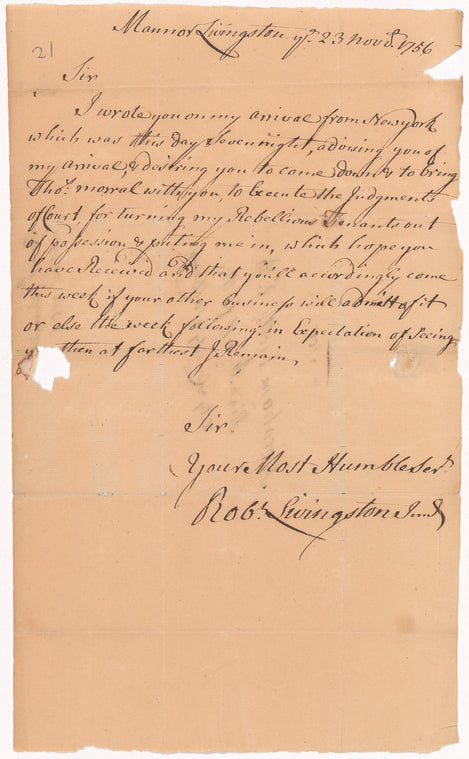 21
Mannor Livingston ye. 23 Novr. 1756
Sir
I wrote you on my arival from Newyork
which was this day Sevennight, advising you of
my arival, & desiring you to come down & to bring
Thos. morral with you, to Execute the Judgments
of Court, for turning my Rebellious Tenants out
of possession & puting me in, which hope you
have Received and that you'll accordingly come
this week if your other business will admitt of it
or else the week following, in Expectation of Seeing
then at farthest I Remain,
Sir.
Your Most Humble Sert.
Robt. Livingston Junr.